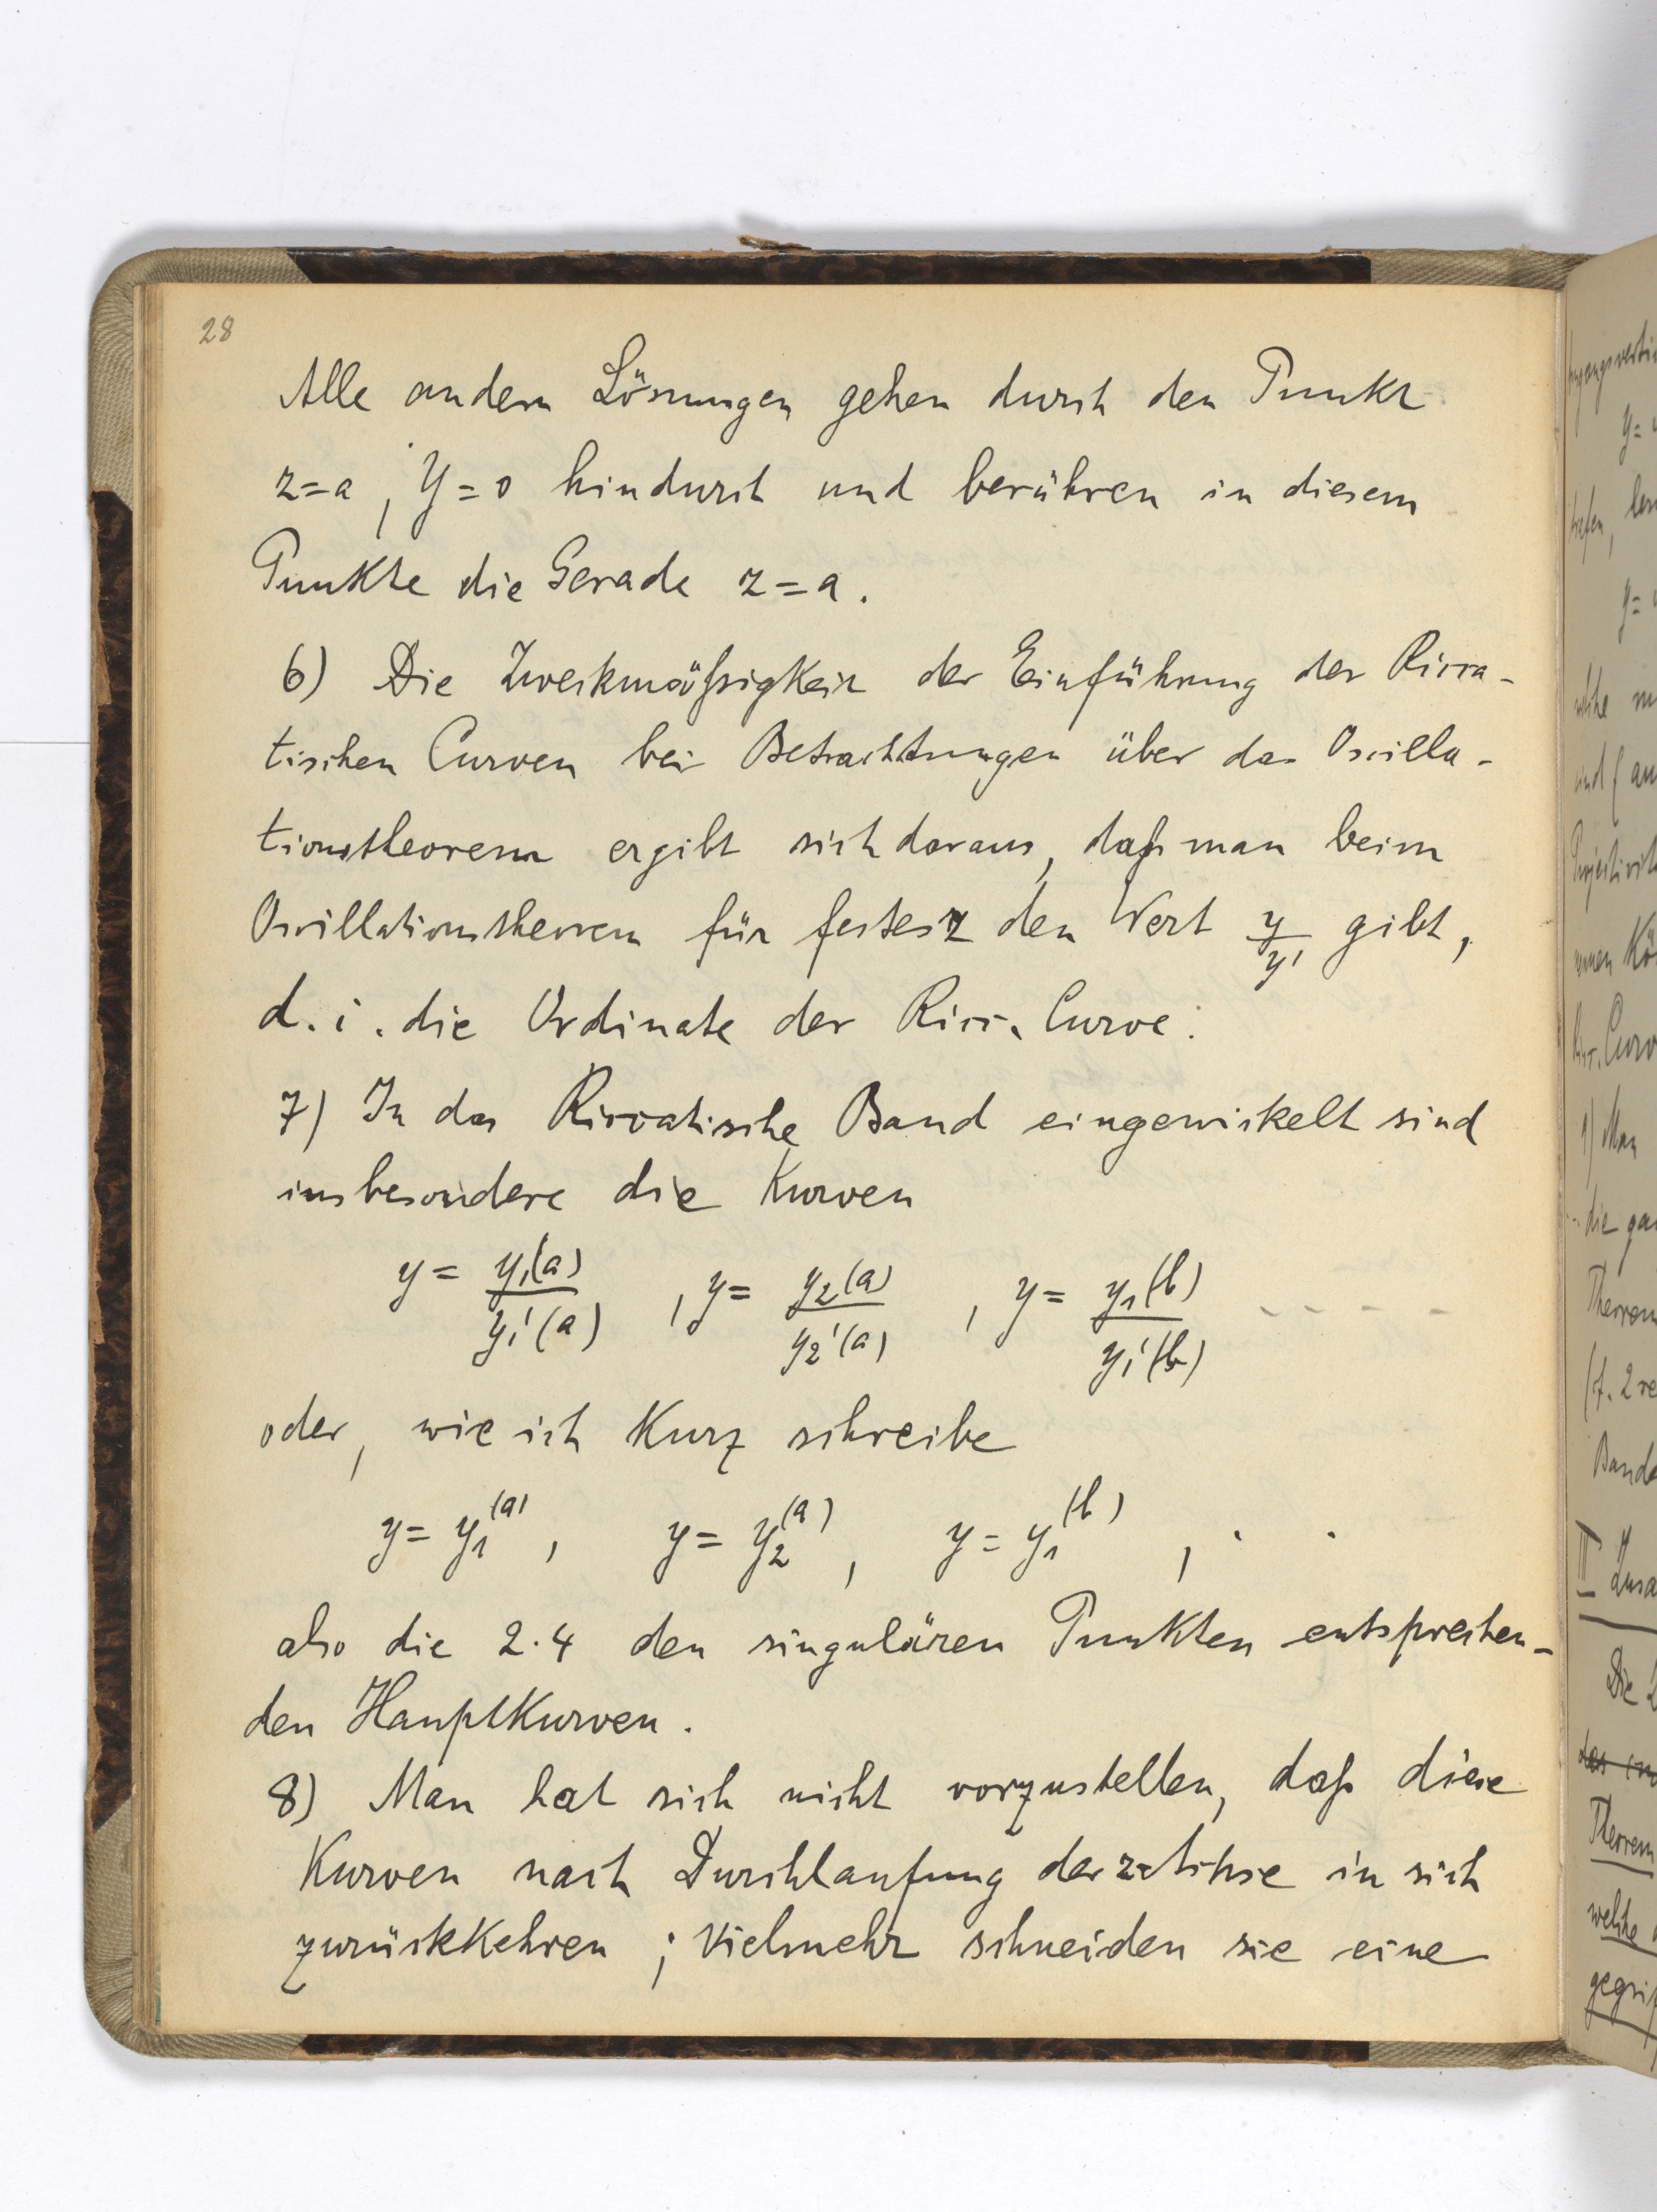 28
Alle andern Lösungen gehen durch den Punkt
z=a, Y=0 hindurch und berühren in diesem
Punkte die Gerade z=a.
6) Die Zweckmäßigkeit der Einführung der Ricca-
tischen Curven bei Betrachtungen über das Oscilla-
tionstheorem ergibt sich daraus, daß man beim
Oscillationstheorem für festes z den Wert y/y' gibt,
d.i. die Ordinate der Ricc. Curve.
7) In das Riccatische Band eingewickelt sind
insbesondere die Kurven
y = y₁(a)/y₁'(a) , y = y₂(a)/y₂'(a) , y = y₁(b)/y₁'(b) - - - - -
oder, wie ich kurz schreibe
y = y₁⁽ᵃ⁾, y = y₂⁽ᵃ⁾, y = y₁⁽ᵇ⁾, . .
also die 2·4 den singulären Punkten entsprechen-
den Hauptkurven.
8) Man hat sich nicht vorzustellen, daß diese
Kurven nach Durchlaufung der z-Achse in sich
zurückkehren; vielmehr schneiden sie eine